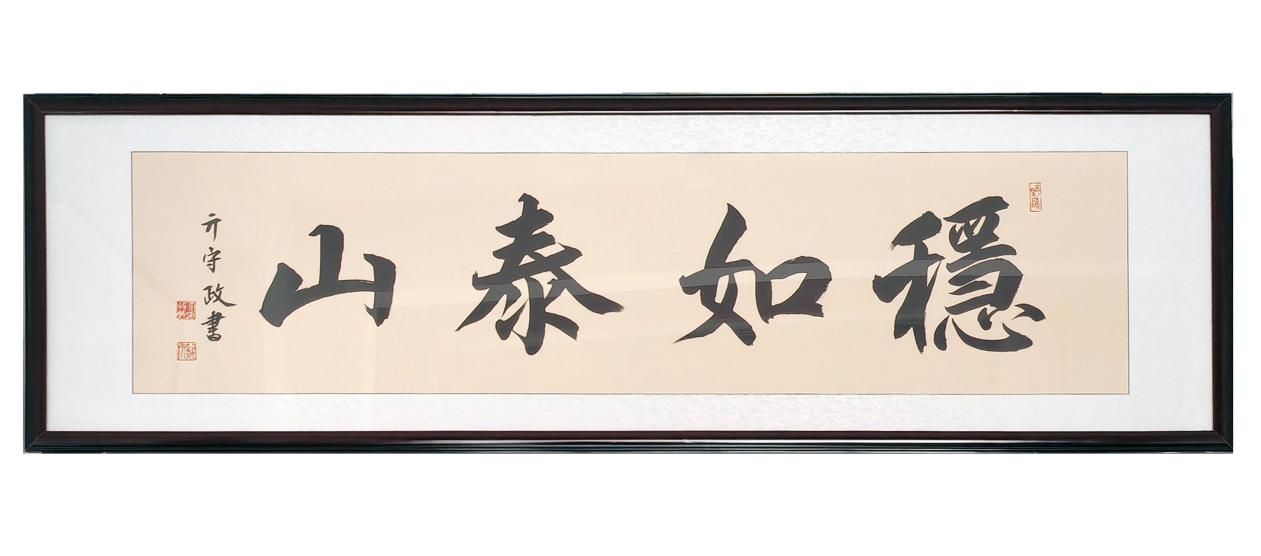 穩如泰山
亓守政書